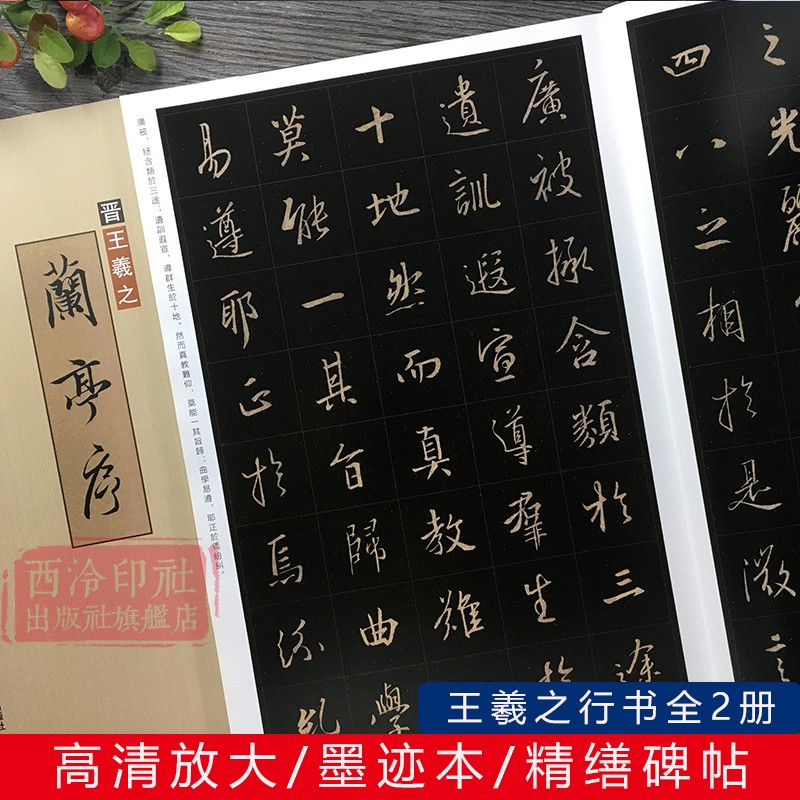 之光麗
四八之相於是微言
廣被拯含類於三途
遺訓遐宣導羣生於
十地然而真教難
莫能一其旨歸曲學
易遵耶正於焉紛乱
廣被，拯含類於三途；遺訓遐宣，導群生於十地。然而真教難仰，莫能一其旨歸；曲學易遵，耶正於焉紛糾。
晋王羲之
蘭亭序
西泠印社
出版社旗艦店
王羲之行书全2册
高清放大/墨迹本/精缮碑帖